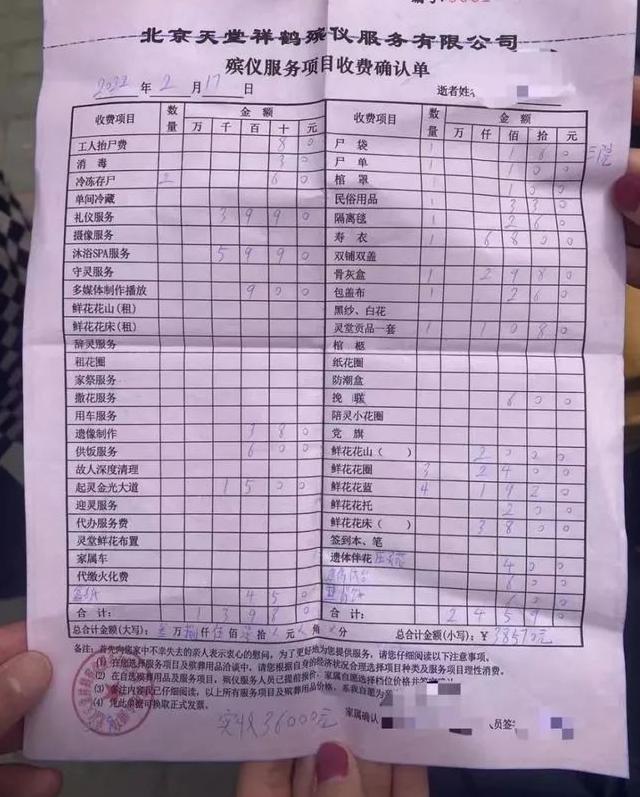 北京天堂祥鹤殡仪服务有限公司
殡仪服务项目收费确认单
2022 年 2 月 17 日 逝者姓名
收费项目 数量 金额 收费项目 数量 金额
万 千 百 十 元 万 仟 佰 拾 元
工人抬尸费 8 0 尸袋 1 1 8 0
消毒 3 0 尸单 1 1 0 0
冷冻存尸 2 6 0 棺罩 1 1 0 0
单间冷藏 民俗用品 3 3 0
礼仪服务 3 9 9 0 隔离毯 1 2 6 0
摄像服务 寿衣 1 6 8 0 0
沐浴SPA服务 5 9 9 0 双铺双盖
守灵服务 骨灰盒 1 2 9 8 0
多媒体制作播放 9 0 0 包盖布 1 2 6 0
鲜花花山(租) 黑纱、白花
鲜花花床(租) 灵堂贡品一套 1 1 0 8 0
辞灵服务 棺柩
租花圈 纸花圈
家祭服务 防潮盒
撒花服务 挽联 6 0 0
用车服务 陪灵小花圈
遗像制作 3 8 0 党旗
供饭服务 6 0 0 鲜花花山( ) 2 0 0 0
故人深度清理 鲜花花圈 3 2 4 0 0
起灵金光大道 1 5 0 0 鲜花花蓝 4 1 9 2 0
迎灵服务 鲜花花托 2 0 0
代办服务费 鲜花花床( ) 3 8 0 0
灵堂鲜花布置 签到本、笔
家属车 遗体伴花 4 0 0
代缴火化费 6 0 0
4 5 0 6 0 0
合计: 1 3 9 8 0 合计: 2 4 5 9 0
总合计金额(大写): 叁万捌仟伍佰柒拾 元 角 分 总合计金额(小写):¥ 38570元
备注:首先向您家中不幸失去的亲人表示衷心的慰问,为了更好地为您提供服务,请您仔细阅读以下注意事项。
(1) 在您选择服务项目及殡葬用品洽谈中,请您根据自身的经济状况合理选择项目种类及服务项目理性消费。
(2) 在自选殡葬用品及服务项目,殡仪服务人员已提前报价,家属自愿选择档位价格并签字确认
(3) 条注内容我已仔细阅读,以上所有服务项目及殡葬用品价格,系我自愿为亲
(4) 凭此单据可换取正式发票。
家属确认
实收36000元
员签